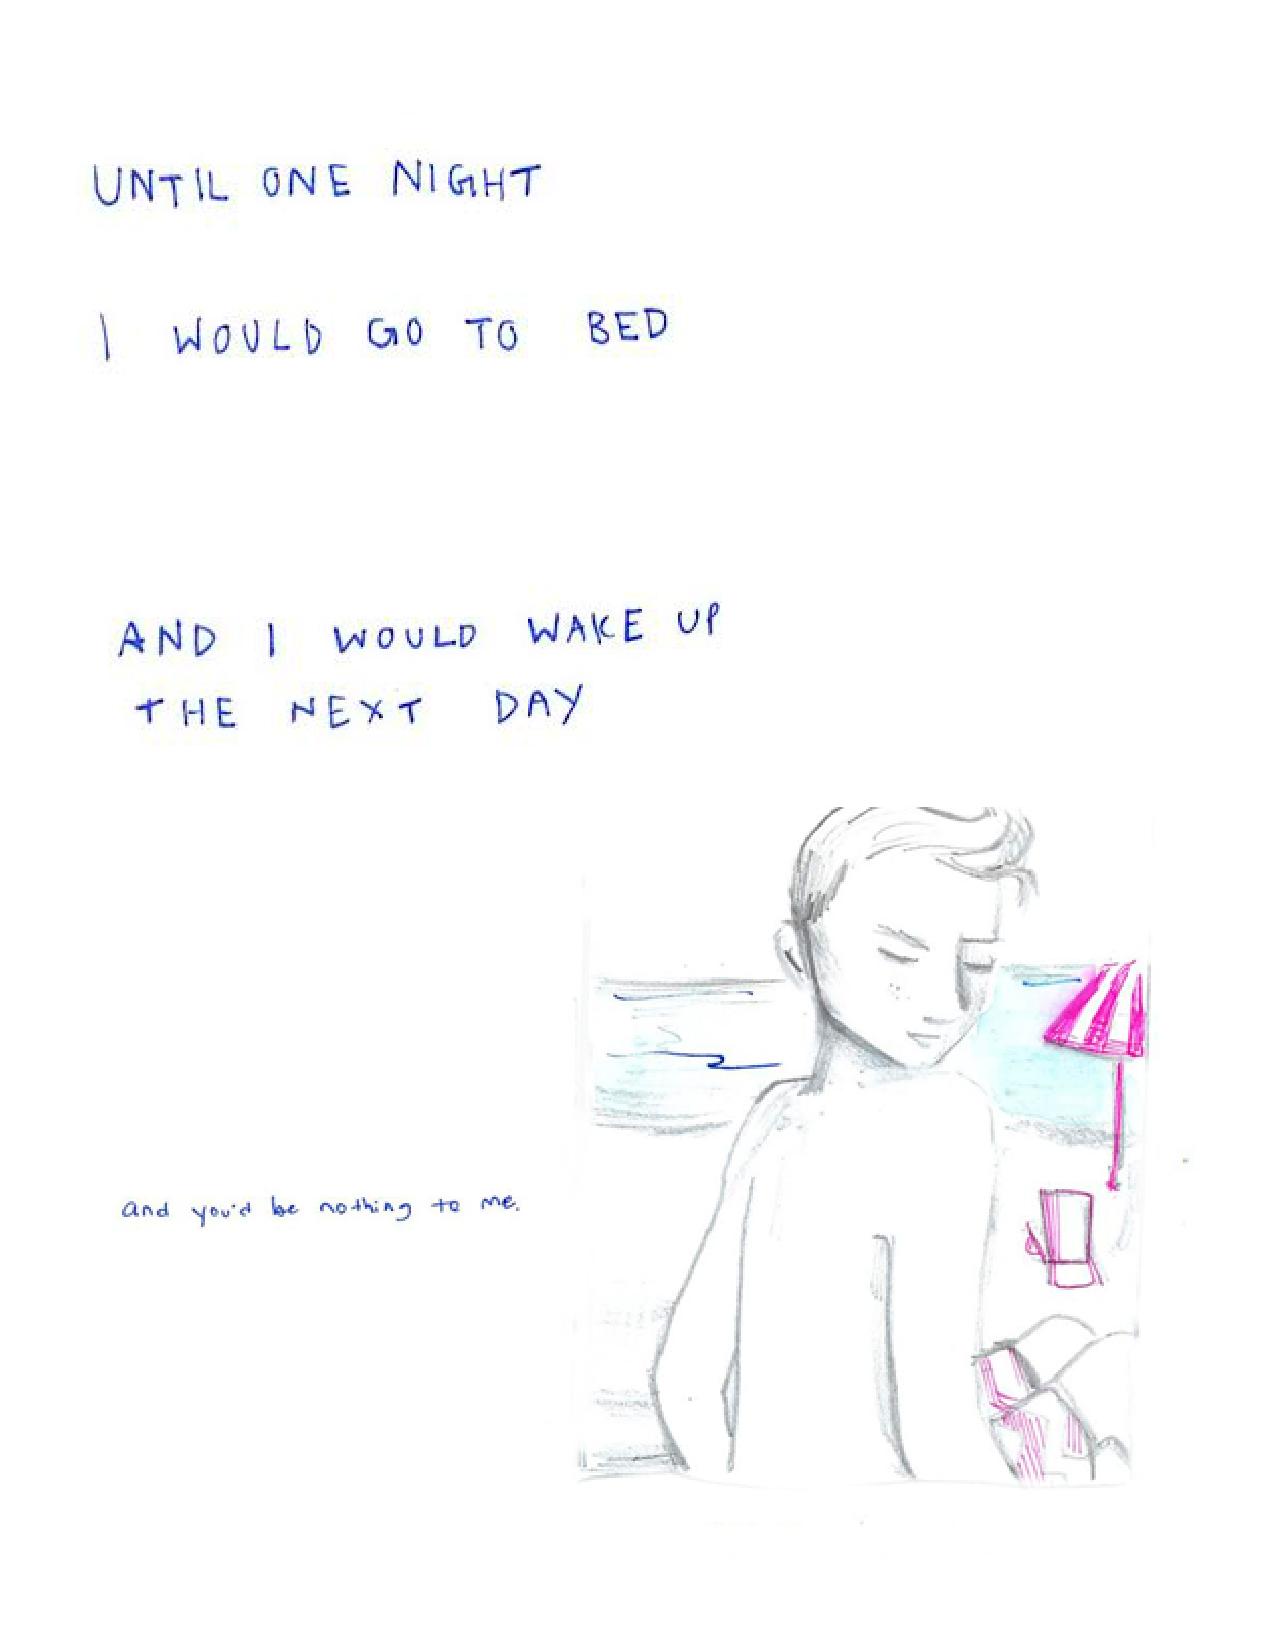 UNTIL ONE NIGHT
I WOULD GO TO BED
AND I WOULD WAKE UP
THE NEXT DAY
and you'd be nothing to me.